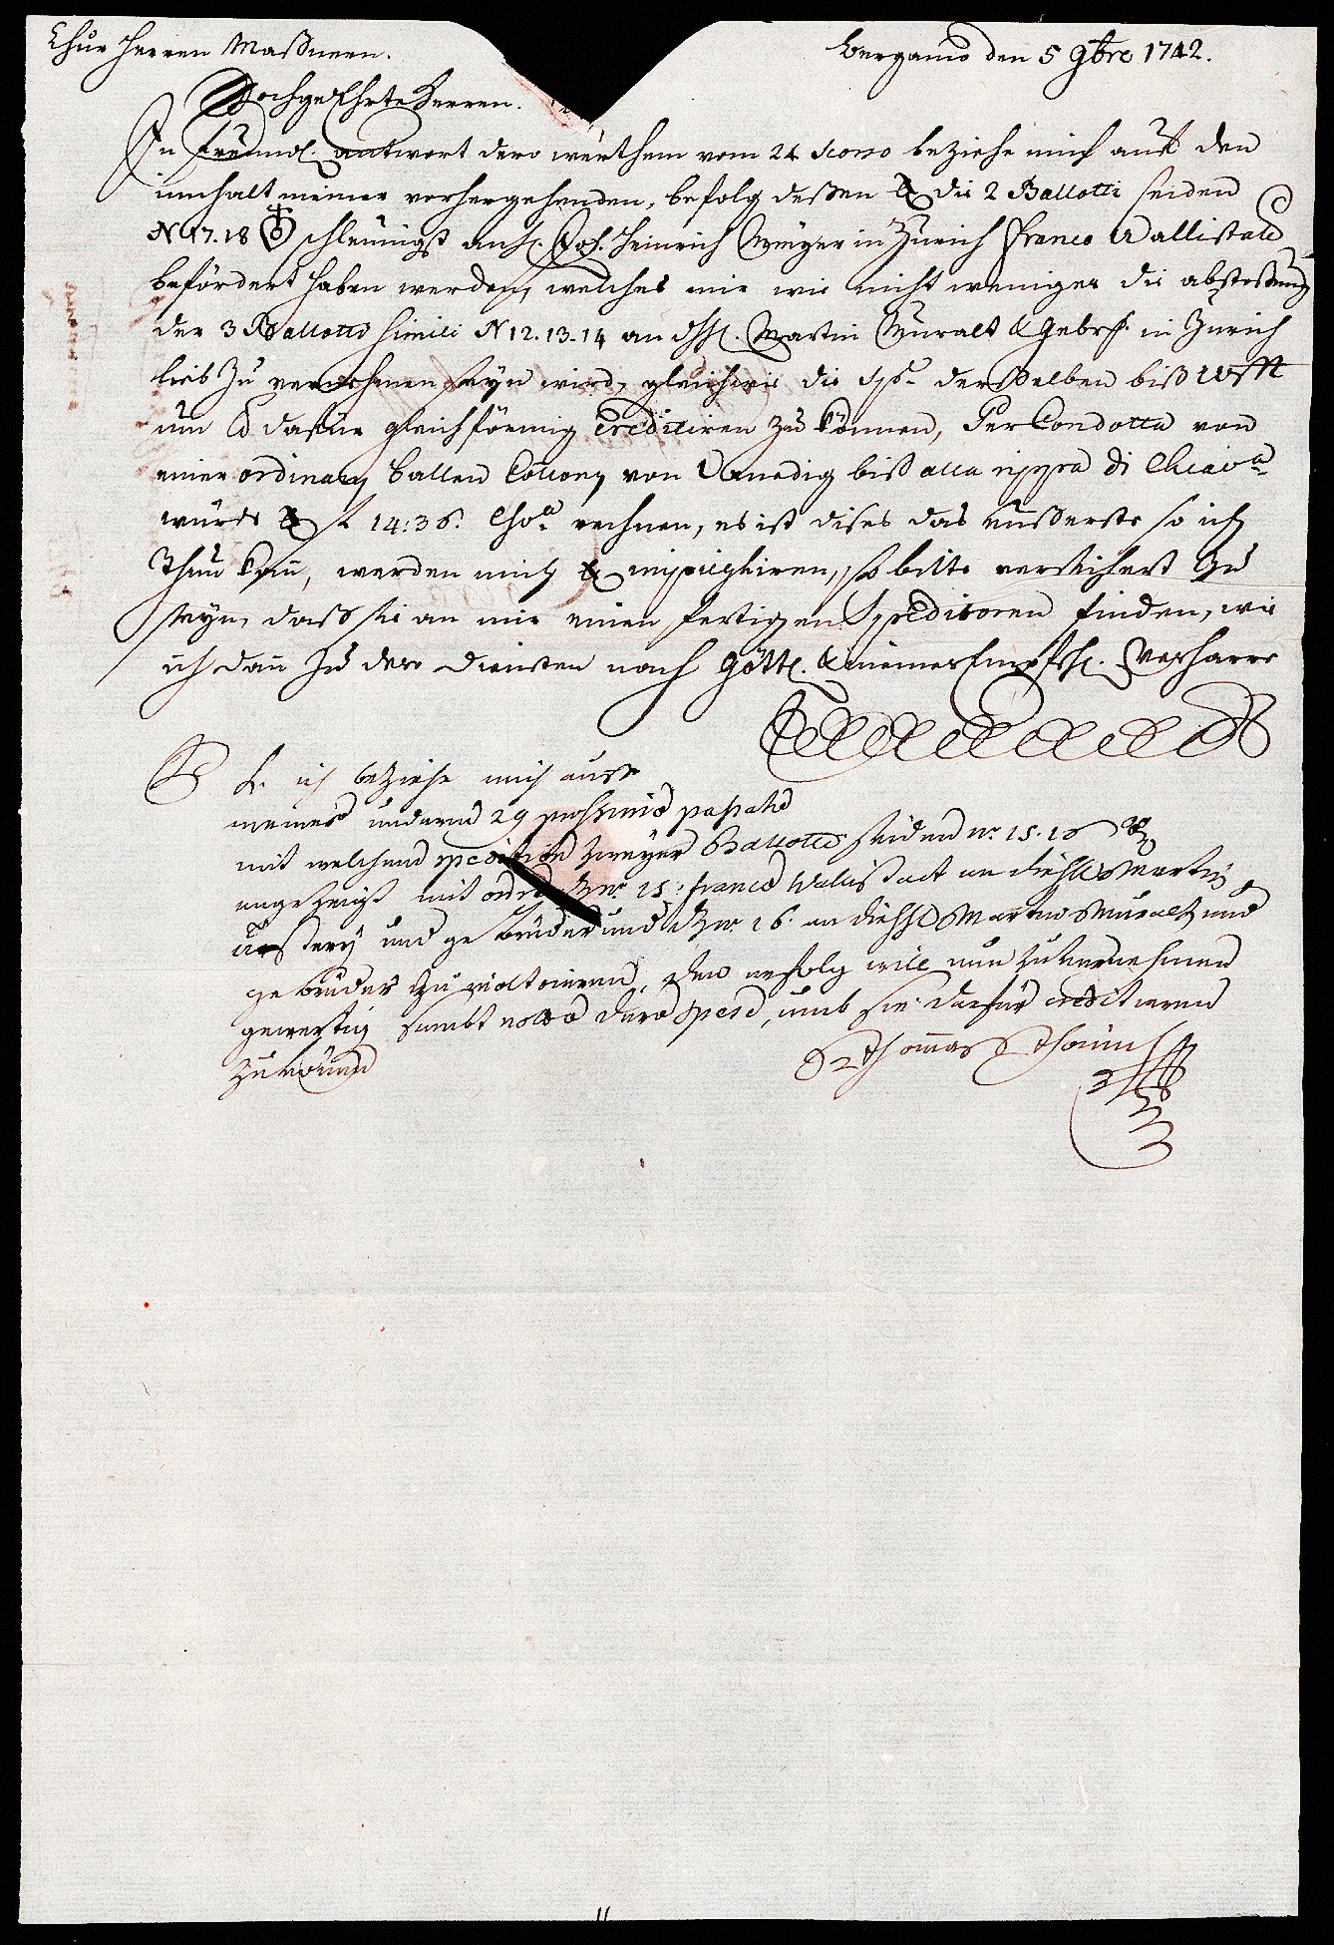 Chur Herren Maßneen.
Bergamo den 5 9bre 1742.
HochgeEhrte Herren.
In freündl. antwort dero werthem vom 24 scorso beziehe mich auff den
innhalt meiner vorhergehenden, befolg deßen die 2 Ballotti seiden
N 17.18 schleünigst an H. Joh. Heinrich Meyer in Zürich franco Wallistad
befördert haben werden, welches mir wie nicht weniger die abstoßung
der 3 Ballotti simili N 12.13.14 an HH. Martin Muralt & Gebrh. in Zürich
lieb zu vernehmen seyn wird, gleichwie die Spe. derselben biß
um dafür gleichförmig Creditiren zu können, Per Condotta von
einer ordinary ballen Cottony von Venedig biß alla rippa di Chiava
würde 14:36. rechnen, es ist dises das eüßerste so ich
Thun kan, werden mich impieghiren, so bitte versichert zu
seyn, daß sie an mir einen fertigen Speditoren finden, wie
ich dan zu dero diensten nach Göttl. & meiner Empfehl. Verharre
ich beziehe mich auff
meines underm 29 passato
mit welchem spedition zweyer Ballotti seiden No. 15.16
angezeigt mit ordre No. 15. franco Wallistatt an die HH Martin
und gebrüder und No. 16. an die HH Martin Muralt und
gebrüder zu, den erfolg will nun zu vernehmen
gewertig sambt nota dero spese, umb sie darfür creditieren
zu können
Thomas